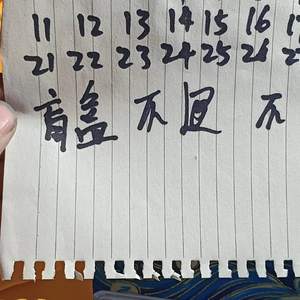 11 12 13 14 15 16
21 22 23 24 25 26
盲盒 不退 不